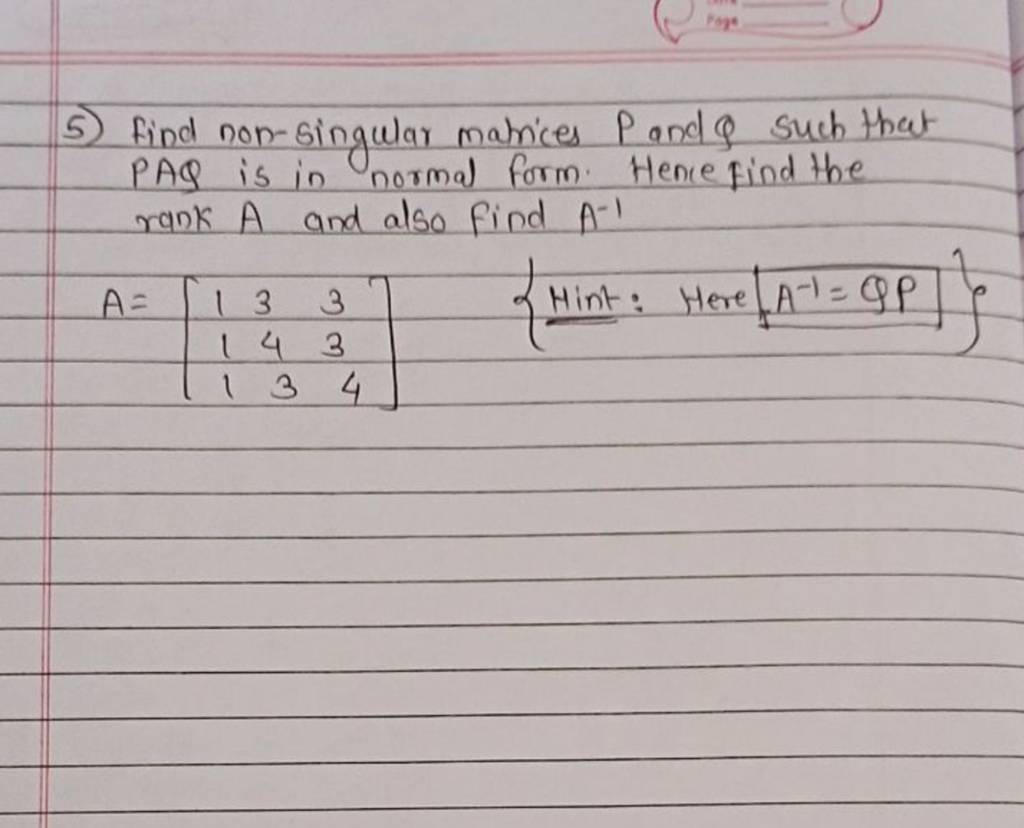 Page
5) Find non-singular matrices P and Q such that
PAQ is in normal form. Hence find the
rank A and also find A-1
A= [ 1 3 3 {Hint: Here [A-1 = QP]}
1 4 3
1 3 4 ]